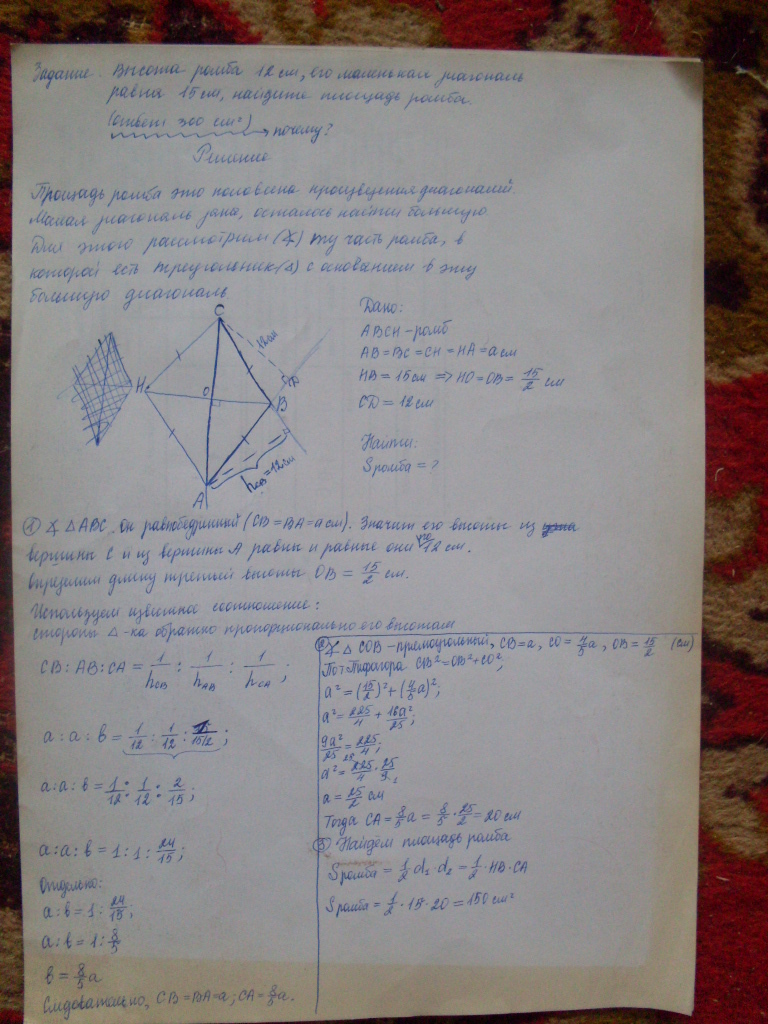 Задание: Высота ромба 12 см, его маленькая диагональ
равна 15 см, найдите площадь ромба.
(ответ 300 см²) → почему?
Решение
Площадь ромба это половина произведения диагоналей.
Малая диагональ дана, осталось найти большую
Для этого рассмотрим (∡) ту часть ромба, в
которой есть треугольник (Δ) с основанием в эту
большую диагональ.
Дано:
ABCH - ромб
AB = BC = CH = HA = a см
HB = 15 см => HO = OB = 15/2 см
CD = 12 см
Найти:
Sромба = ?
C
12 см
D
H
O
B
A
hCB = 12 см
① ∡ ΔABC. Он равнобедренный (CB = BA = a см). Значит его высоты из
вершины C и из вершины A равны и равные они 12 см.
определим длину третьей высоты OB = 15/2 см.
Используем известное соотношение:
стороны Δ-ка обратно пропорционально его высотам
CB : AB : CA = 1/hCB : 1/hAB : 1/hCA ;
a : a : b = 1/12 : 1/12 : 1/15/2 ;
a : a : b = 1/12 : 1/12 : 2/15 ;
a : a : b = 1 : 1 : 24/15 ;
Отдельно:
a : b = 1 : 24/15 ;
a : b = 1 : 8/5
b = 8/5 a
Следовательно, CB = BA = a ; CA = 8/5 a.
② ∡ Δ COB - прямоугольный, CB = a, CO = 4/5 a, OB = 15/2 (см)
По т. Пифагора CB² = OB² + CO²;
a² = (15/2)² + (4/5 a)²;
a² = 225/4 + 16a²/25 ;
9a²/25 = 225/4 ;
a² = 225/4 · 25/9 ;
a = 25/2 см
Тогда CA = 8/5 a = 8/5 · 25/2 = 20 см
③ Найдём площадь ромба
Sромба = 1/2 · d₁ · d₂ = 1/2 · HB · CA
Sромба = 1/2 · 15 · 20 = 150 см²